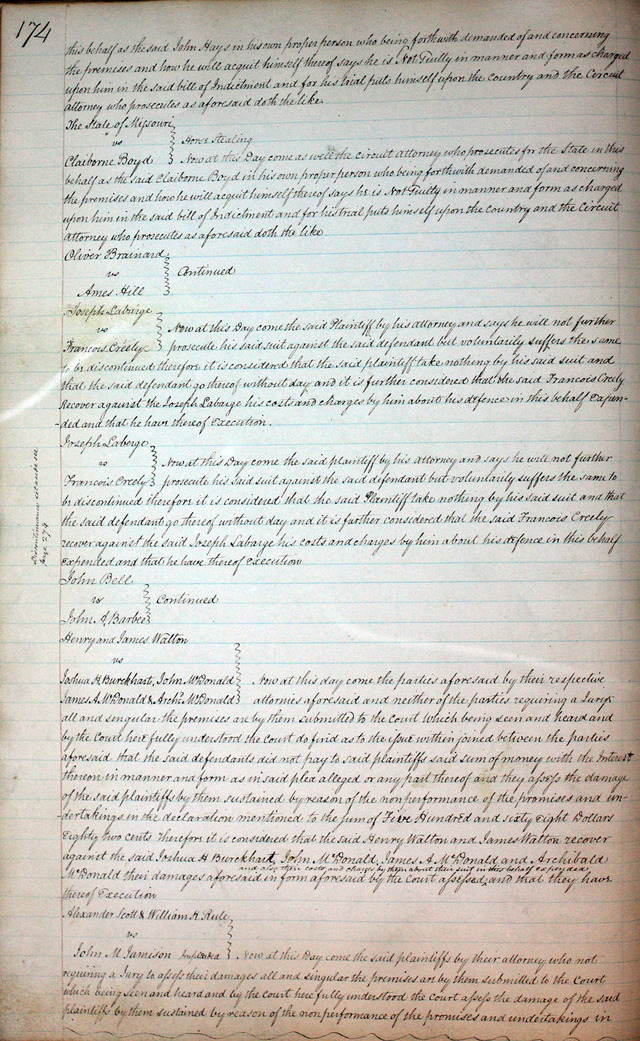 174
this behalf as the said John Hays in his own proper person who being forthwith demanded of and concerning
the premises and how he will acquit himself thereof says he is Not Guilty in manner and form as charged
upon him in the said bill of Indictment and for his trial puts himself upon the Country and the Circuit
attorney who prosecutes as aforesaid doth the like
The State of Missouri
vs
Horse Stealing
Claiborne Boyd Now at this Day come as well the Circuit Attorney who prosecutes for the State in this
behalf as the said Claiborne Boyd in his own proper person who being forthwith demanded of and concerning
the premises and how he will acquit himself thereof says he is Not Guilty in manner and form as charged
upon him in the said bill of Indictment and for his trial puts himself upon the Country and the Circuit
Attorney who prosecutes as aforesaid doth the like
Oliver Brainard
vs Continued
Ames Hill
Joseph Labarge
vs Now at this Day come the said Plaintiff by his attorney and says he will not further
Francois Creely prosecute his said suit against the said defendant but voluntarily suffers the same
to be discontinued therefore it is considered that the said plaintiff take nothing by his said suit and
that the said defendant go thereof without day and it is further considered that the said Francois Creely
Recover against the Joseph Labarge his costs and charges by him about his defence in this behalf expen-
-ded and that he have thereof execution.
Joseph Laberge
vs Now at this Day come the said plaintiff by his attorney and says he will not further
Francois Creely prosecute his Said suit against the said defendant but voluntarily suffers the same to
be discontinued therefore it is considered that the said Plaintiff take nothing by his said suit and that
the said defendant go thereof without day and it is further considered that the said Francois Creely
recover against the said Joseph Labarge his costs and charges by him about his defence in this behalf
expended and that he have thereof execution
John Bell
vs Continued
John Barbee
Henry and James Walton
vs
Joshua H Burckhart, John McDonald Now at this day come the parties aforesaid by their respective
James A. McDonald & Archd McDonald attornies aforesaid and neither of the parties requiring a Jury
all and sengular the premises are by them submitted to the Court which being seen and heard and
by the Court here fully understood the Court do find as to the issue within joined between the parties
aforesaid that the said defendants did not pay to said plaintiffs said sum of money with the Interest
thereon in manner and form as in said plea alleged or any part thereof and they assess the damage
of the said plaintiffs by them sustained by reason of the nonperformance of the promises and un-
-dertakings in the declaration mentioned to the sum of Five Hundred and sixty Eight Dollars
Eighty two cents. Therefore it is considered that the said Henry Walton and James Walton recover
against the said Joshua H Burckhart, John McDonald, James A. McDonald and Archibald
and also their costs and charges by them about their suit in this behalf expended
McDonald their damages aforesaid in form aforesaid by the Court assessed, and that they have
thereof Execution
Alexander Scott & William K. Rule
vs
John M Jamison Now at this Day come the said plaintiffs by their attorney who not
requiring a Jury to assess their damages all and singular the premises are by them submitted to the Court
which being seen and heard and by the court here fully understood the Court assess the damage of the said
plaintiffs by them sustained by reason of the nonperformance of the promises and undertakings in